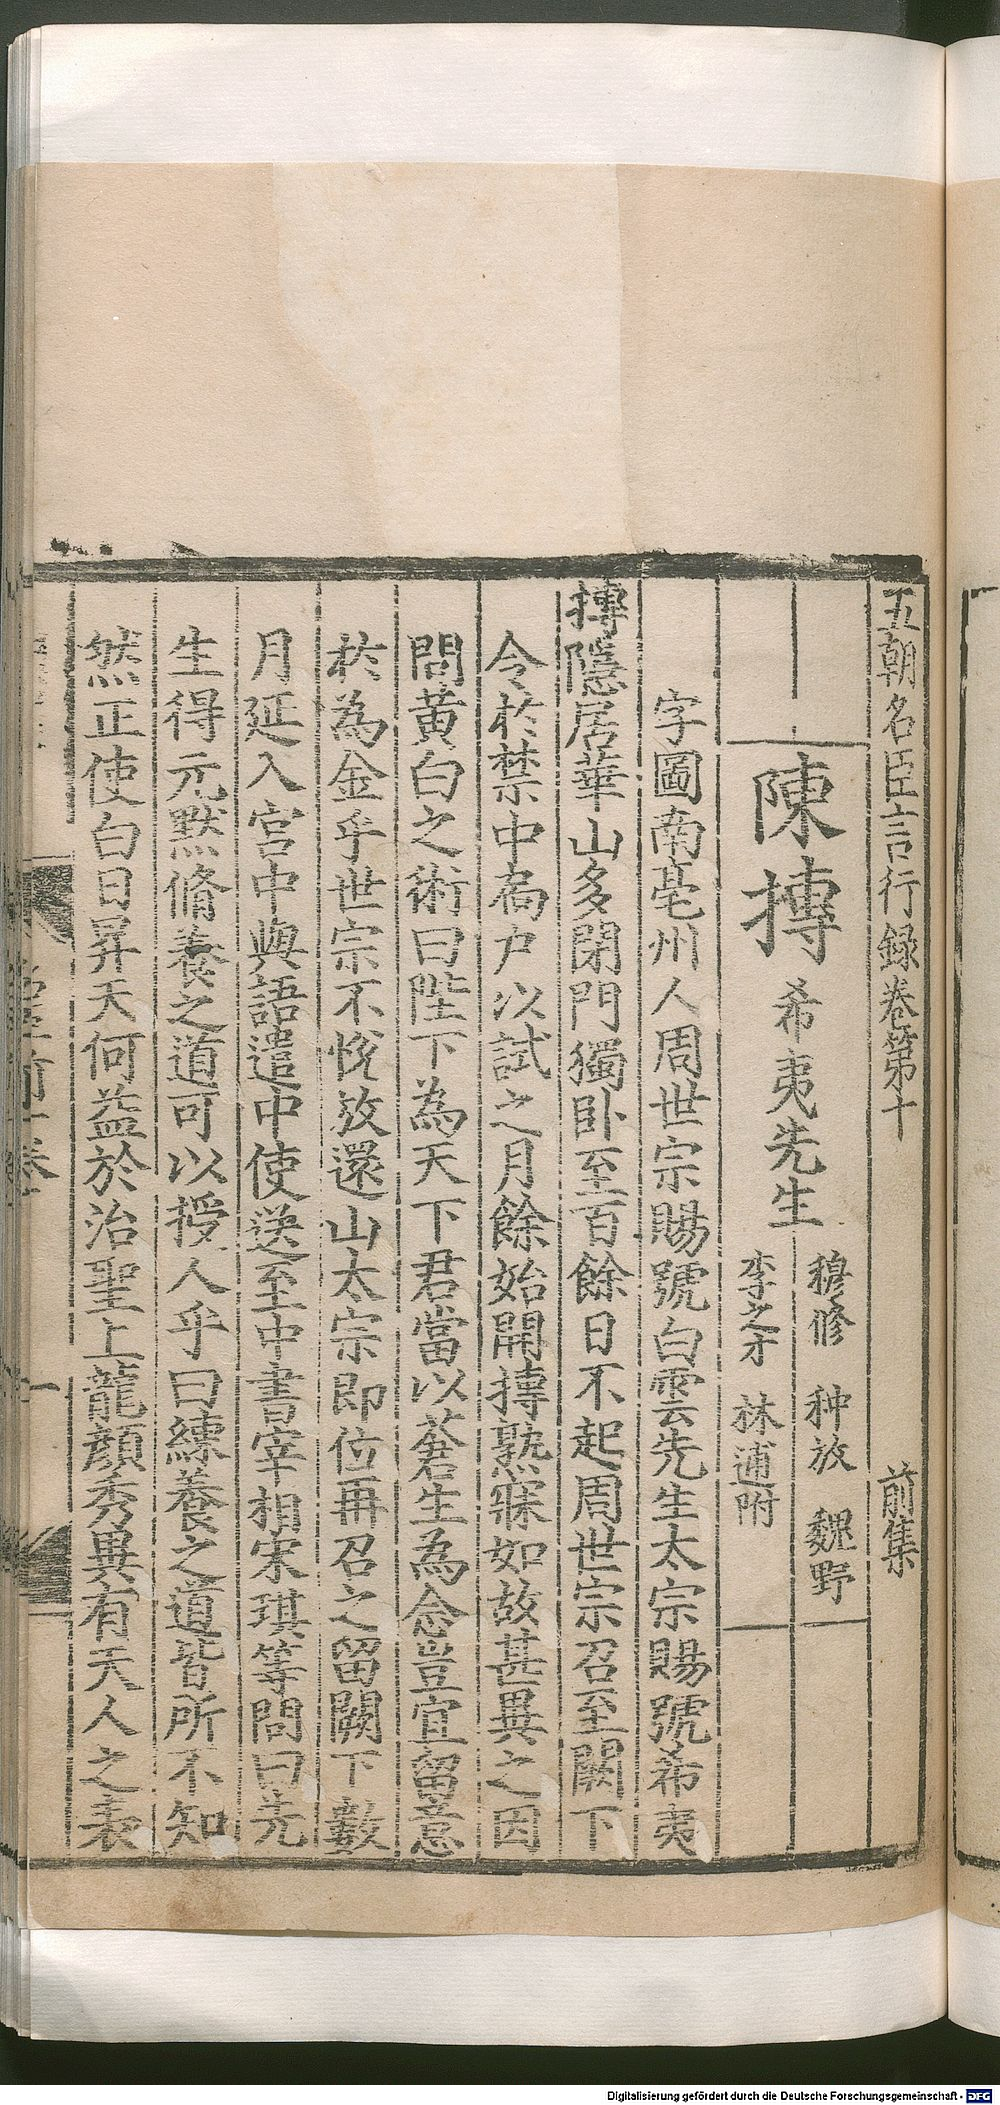 五朝名臣言行録卷第十 前集
陳摶 希夷先生
穆修 种放 魏野
李之才 林逋附
字圖南亳州人周世宗賜號白雲先生太宗賜號希夷
摶隱居華山多閉門獨卧至百餘日不起周世宗召至闕下
令於禁中扃户以試之月餘始開摶熟寐如故甚異之因
問黃白之術曰陛下為天下君當以蒼生為念豈宜留意
於為金乎世宗不恱放還山太宗即位再召之留闕下數
月延入宮中與語遣中使送至中書宰相宋琪等問曰先
生得元默脩養之道可以授人乎曰練養之道皆所不知
然正使白日昇天何益於治聖上龍顔秀異有天人之表
Digitalisierung gefördert durch die Deutsche Forschungsgemeinschaft - DFG